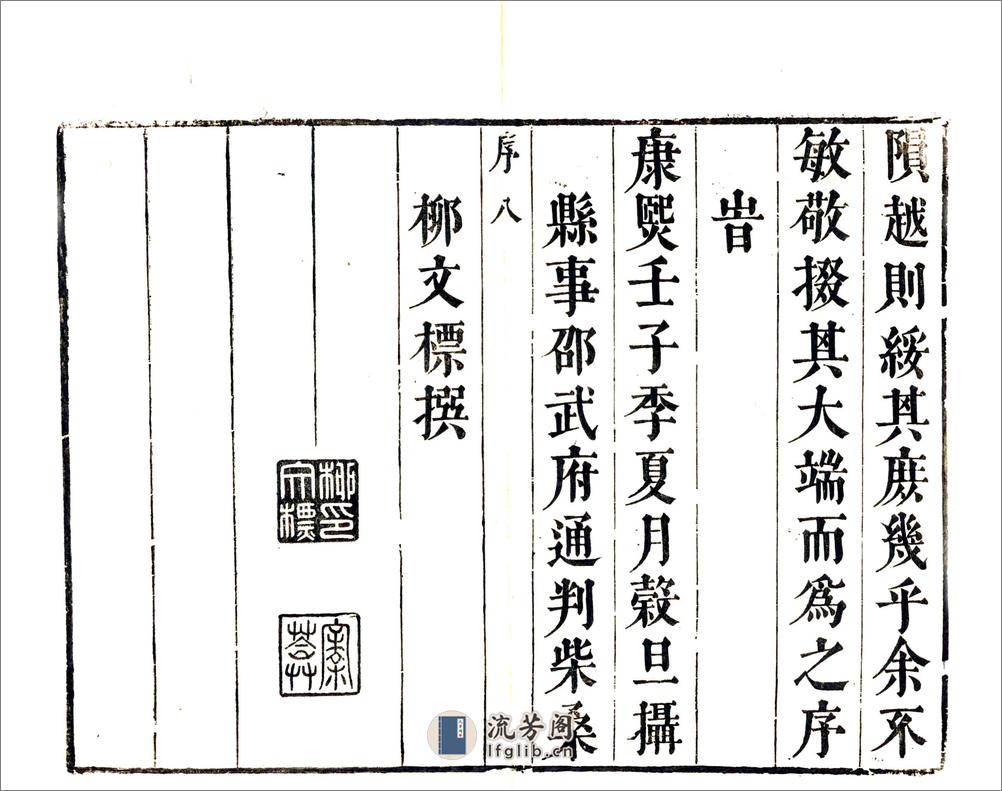 隕越則綏其庶幾乎余不
敏敬掇其大端而爲之序
旹
康熙壬子季夏月穀旦攝
縣事邵武府通判柴桑
序 八
柳文標撰
柳文標印
流芳阁
lfglib.cn